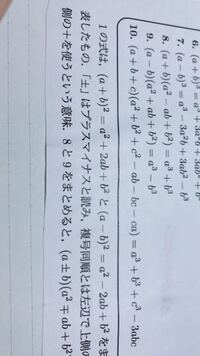 6. (a+b)³ = a³ + 3a²b + 3ab² + b³
7. (a−b)³ = a³ − 3a²b + 3ab² − b³
8. (a+b)(a²−ab+b²) = a³ + b³
9. (a−b)(a²+ab+b²) = a³ − b³
10. (a+b+c)(a²+b²+c²−ab−bc−ca) = a³+b³+c³−3abc
1 の式は, (a+b)² = a²+2ab+b² と (a−b)² = a²−2ab+b² をま
表したもの. 「±」はプラスマイナスと読み, 複号同順とは左辺で上側の
側の+を使うという意味. 8 と 9 をまとめると, (a±b)(a²∓ab+b²